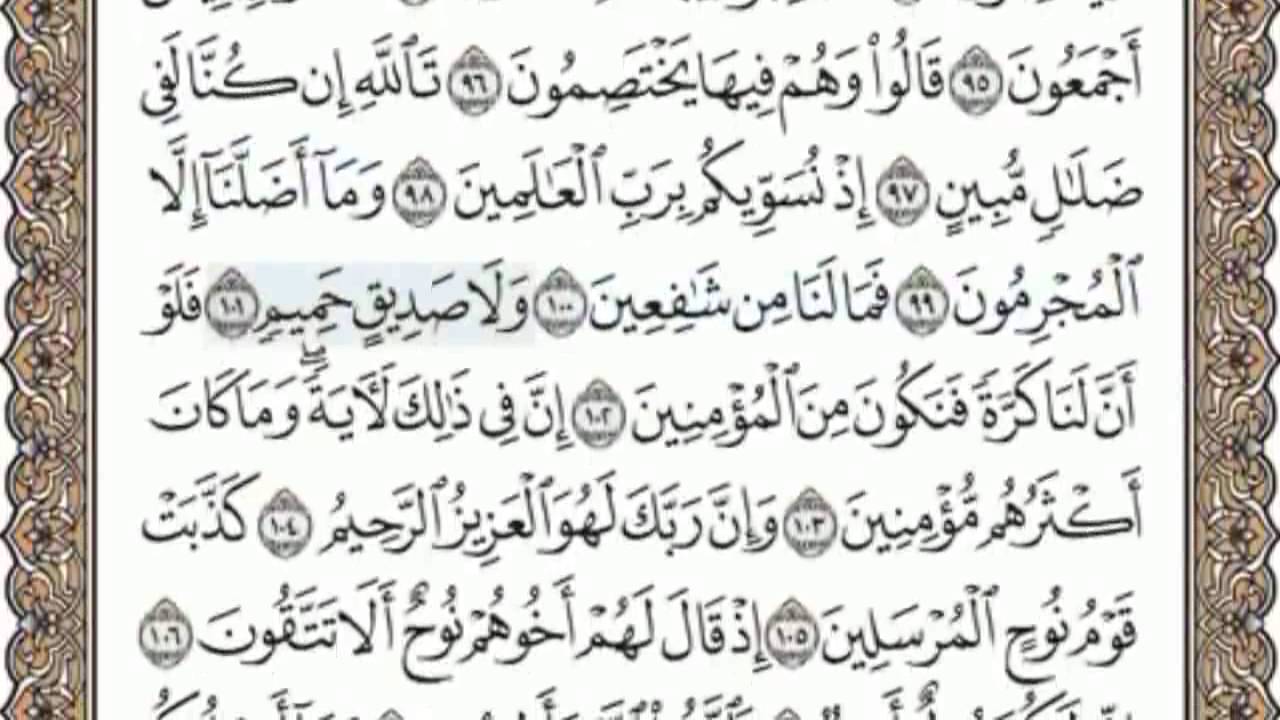 أَجْمَعُونَ ٩٥ قَالُوا۟ وَهُمْ فِيهَا يَخْتَصِمُونَ ٩٦ تَٱللَّهِ إِن كُنَّا لَفِى
ضَلَـٰلٍ مُّبِينٍ ٩٧ إِذْ نُسَوِّيكُم بِرَبِّ ٱلْعَـٰلَمِينَ ٩٨ وَمَآ أَضَلَّنَآ إِلَّا
ٱلْمُجْرِمُونَ ٩٩ فَمَا لَنَا مِن شَـٰفِعِينَ ١٠٠ وَلَا صَدِيقٍ حَمِيمٍ ١٠١ فَلَوْ
أَنَّ لَنَا كَرَّةً فَنَكُونَ مِنَ ٱلْمُؤْمِنِينَ ١٠٢ إِنَّ فِى ذَٰلِكَ لَـَٔايَةً ۖ وَمَا كَانَ
أَكْثَرُهُم مُّؤْمِنِينَ ١٠٣ وَإِنَّ رَبَّكَ لَهُوَ ٱلْعَزِيزُ ٱلرَّحِيمُ ١٠٤ كَذَّبَتْ
قَوْمُ نُوحٍ ٱلْمُرْسَلِينَ ١٠٥ إِذْ قَالَ لَهُمْ أَخُوهُمْ نُوحٌ أَلَا تَتَّقُونَ ١٠٦